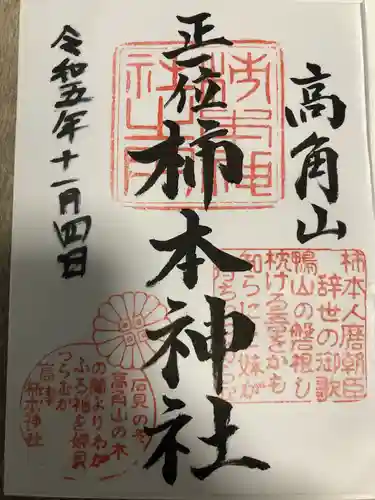 高角山
正一位
柿本神社
令和五年十一月四日
柿本人麿朝臣
辞世の御歌
鴨山の磐根し
枕ける吾をかも
知らにと妹が
待ちつつあらむ
石見のや
高角山の木
の間よりわが
ふる袖を妹見
つらむか
高津
柿本神社